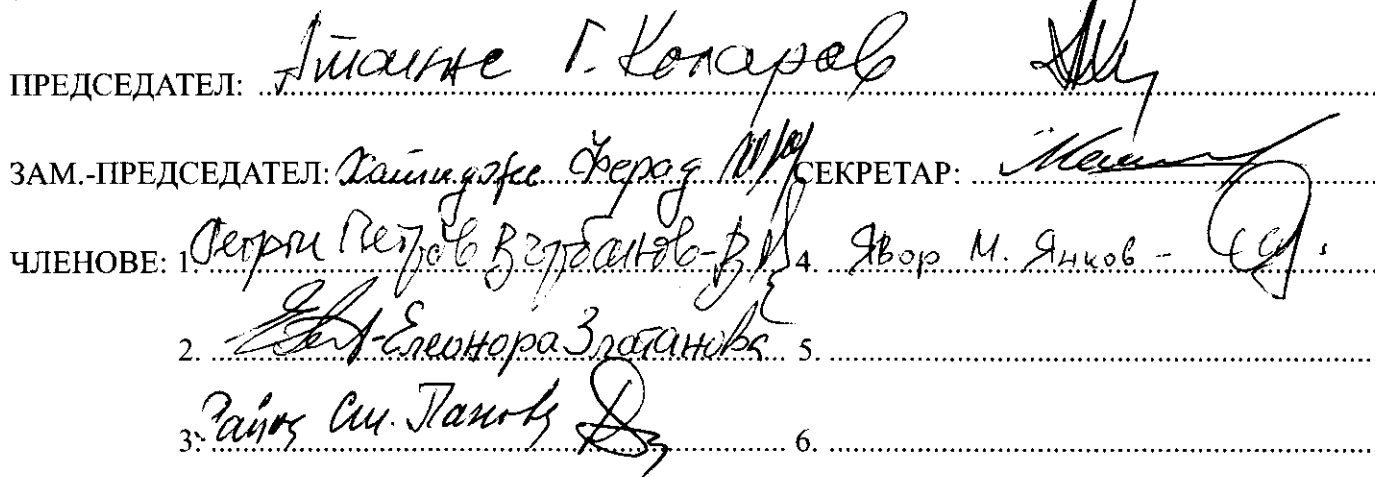 ПРЕДСЕДАТЕЛ: Г. Коларов
ЗАМ.-ПРЕДСЕДАТЕЛ: Хайридже Ферад СЕКРЕТАР:
ЧЛЕНОВЕ: 1. Петър Петров Върбанов - 4. Явор М. Янков -
2. - Елеонора Златанова 5.
3. Райна Ст. Панова 6.